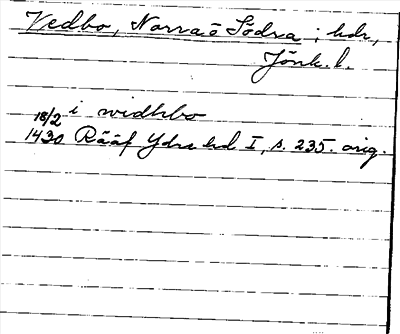 Vedbo, Norra o Södra ; hdr,
Jönk. l.
i widhbo
18/2
1430 Rääf Ydre hd I, s. 235. orig.